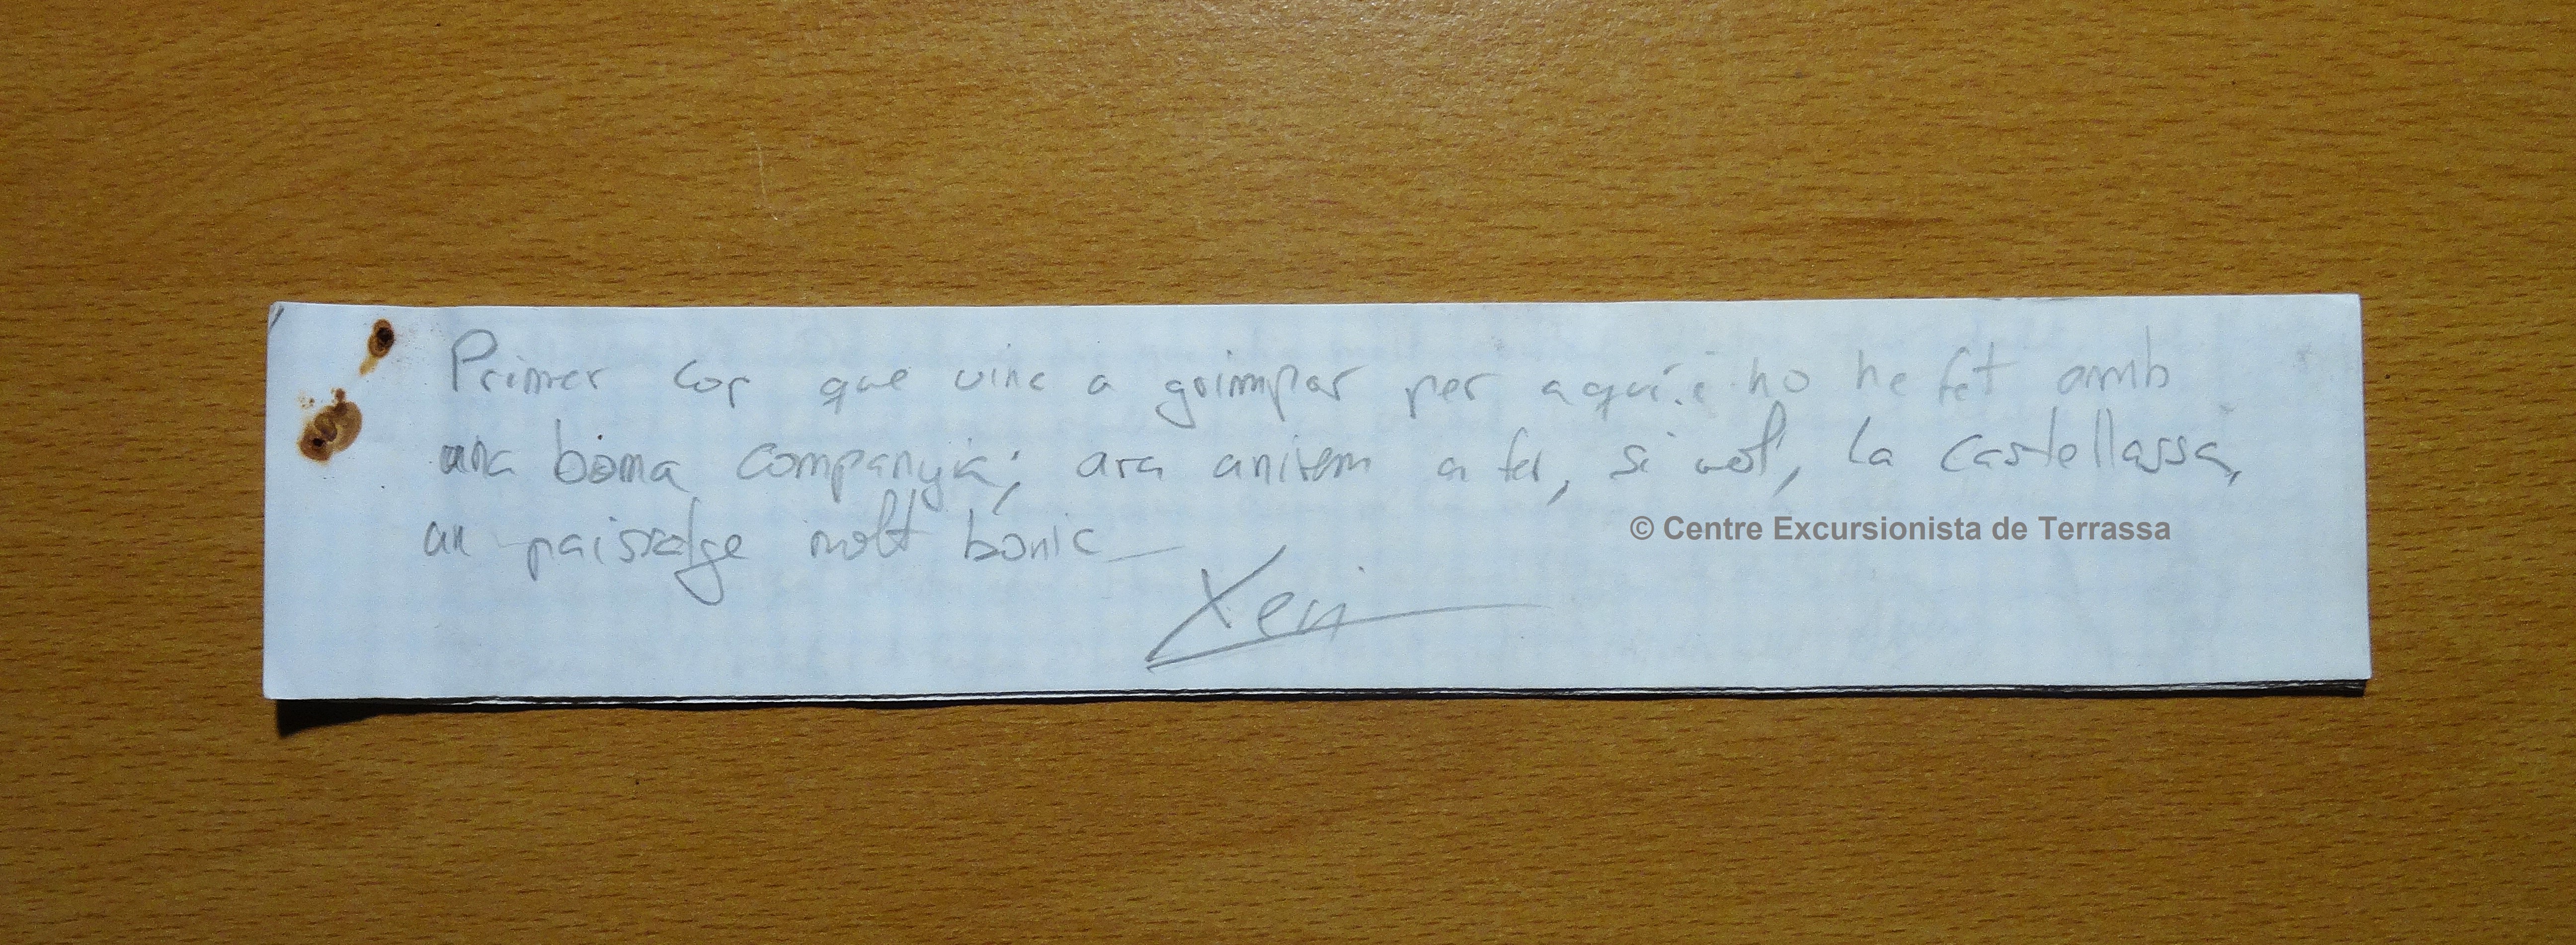 Primer cop que vinc a grimpar per aquí i ho he fet amb
una bona companyia; ara anirem a fer, si vol, la Castellassa,
un paisatge molt bonic
© Centre Excursionista de Terrassa
Xevi